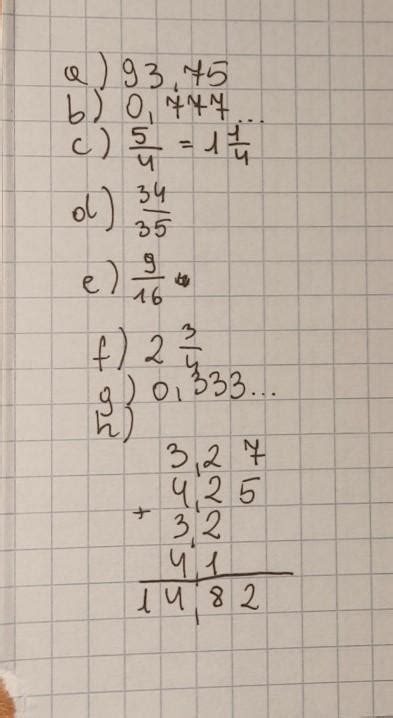 a) 93,75
b) 0,777...
c) 5/4 = 1 1/4
d) 34/35
e) 9/16
f) 2 3/4
g) 0,333...
h)
3,27
4,25
+ 3,2
4,1
14,82